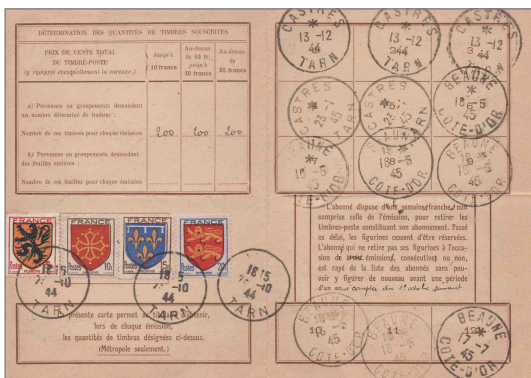 DÉTERMINATION DES QUANTITÉS DE TIMBRES SOUSCRITES
PRIX DE VENTE TOTAL
DU TIMBRE-POSTE
(y compris éventuellement la surtaxe.)
Jusqu'à
10 francs
Au-dessus
de 10 fr.
jusqu'à
20 francs
Au-dessus
de
20 francs
a) Personnes ou groupements demandant
un nombre déterminé de timbres :
Nombre de ces timbres pour chaque émission
200 200 200
b) Personnes ou groupements demandant
des feuilles entières :
Nombre de ces feuilles pour chaque émission
FRANCE FRANCE FRANCE FRANCE
Postes 10c Postes Postes
18 15
10
44
TARN
18 15
-10
44
TARN
18 15
-10
44
TARN
La présente carte permet au titulaire d'obtenir,
lors de chaque émission,
les quantités de timbres désignées ci-dessus.
(Métropole seulement.)
CASTRES
13 -12
44
TARN
CASTRES
13 -12
44
TARN
CASTRES
13 -12
44
TARN
CASTRES
23 -7
45
TARN
CASTRES
23 -7
45
TARN
BEAUNE
18 -5
45
COTE-D'OR
BEAUNE
18 -5
45
COTE-D'OR
18 -5
45
COTE-D'OR
45
COTE-D'OR
L'abonné dispose d'une semaine franche, non
comprise celle de l'émission, pour retirer les
timbres-poste constituant son abonnement. Passé
ce délai, les figurines cessent d'être réservées.
L'abonné qui ne retire pas ses figurines à l'occa-
sion de émissions consécutives ou non,
est rayé de la liste des abonnés sans pou-
voir y figurer de nouveau avant une période
d'un an à compter du 1er octobre suivant
10
11
12
BEAUNE
17 -7
45
COTE-D'OR